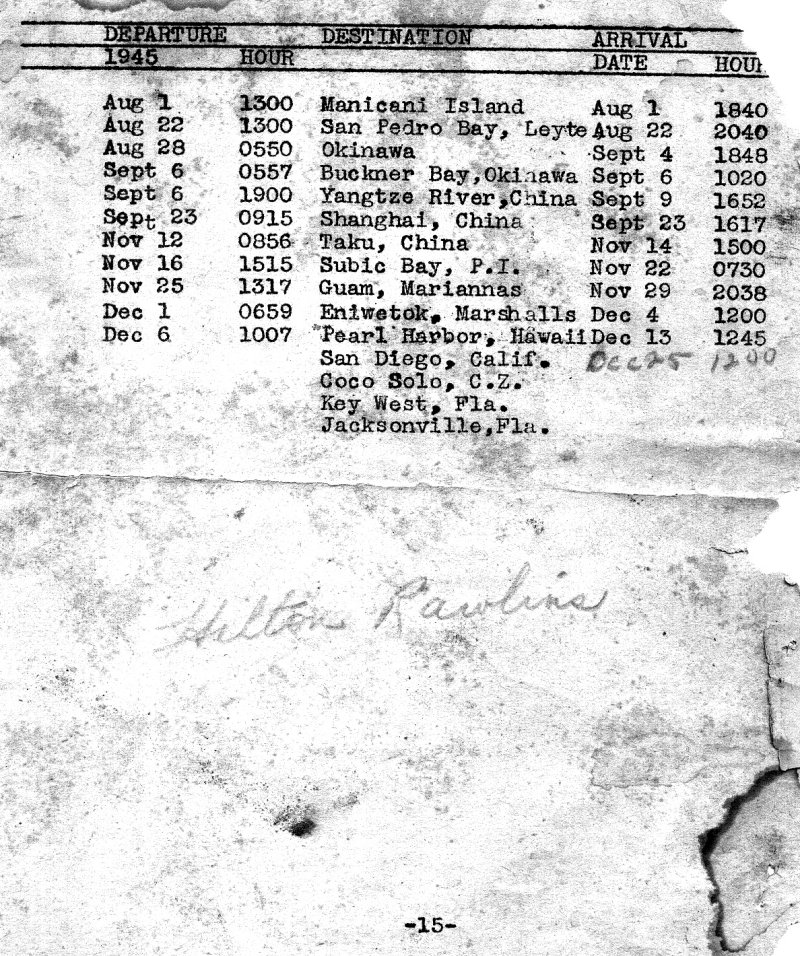 DEPARTURE DESTINATION ARRIVAL
1945 HOUR DATE HOUR
Aug 1 1300 Manicani Island Aug 1 1840
Aug 22 1300 San Pedro Bay, Leyte Aug 22 2040
Aug 28 0550 Okinawa Sept 4 1848
Sept 6 0557 Buckner Bay,Okinawa Sept 6 1020
Sept 6 1900 Yangtze River,China Sept 9 1652
Sept 23 0915 Shanghai, China Sept 23 1617
Nov 12 0856 Taku, China Nov 14 1500
Nov 16 1515 Subic Bay, P.I. Nov 22 0730
Nov 25 1317 Guam, Mariannas Nov 29 2038
Dec 1 0659 Eniwetok, Marshalls Dec 4 1200
Dec 6 1007 Pearl Harbor, Hawaii Dec 13 1245
San Diego, Calif. Dec 25 1200
Coco Solo, C.Z.
Key West, Fla.
Jacksonville,Fla.
Hilton Rawlins
-15-